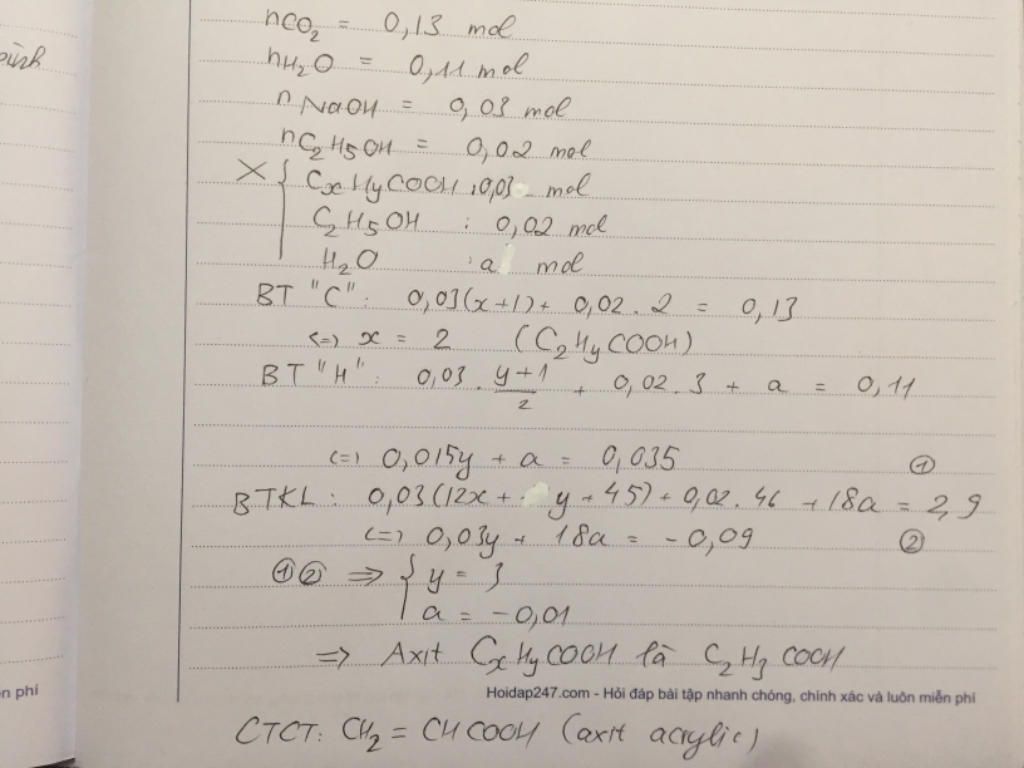 nCO₂ = 0,13 mol
nH₂O = 0,11 mol
nNaOH = 0,03 mol
nC₂H₅OH = 0,02 mol
X { CₓHyCOOH : 0,03 mol
C₂H₅OH : 0,02 mol
H₂O : a mol
BT "C": 0,03(x+1) + 0,02.2 = 0,13
<=> x = 2 (C₂HyCOOH)
BT "H": 0,03.(y+1)/2 + 0,02.3 + a = 0,11
<=> 0,015y + a = 0,035 ①
BTKL: 0,03(12x + y + 45) + 0,02.46 + 18a = 2,9
<=> 0,03y + 18a = -0,09 ②
①② => { y = 3
a = -0,01
=> Axit CₓHyCOOH là C₂H₃COOH
Hoidap247.com - Hỏi đáp bài tập nhanh chóng, chính xác và luôn miễn phí
CTCT: CH₂ = CHCOOH (axit acrylic)
n phí